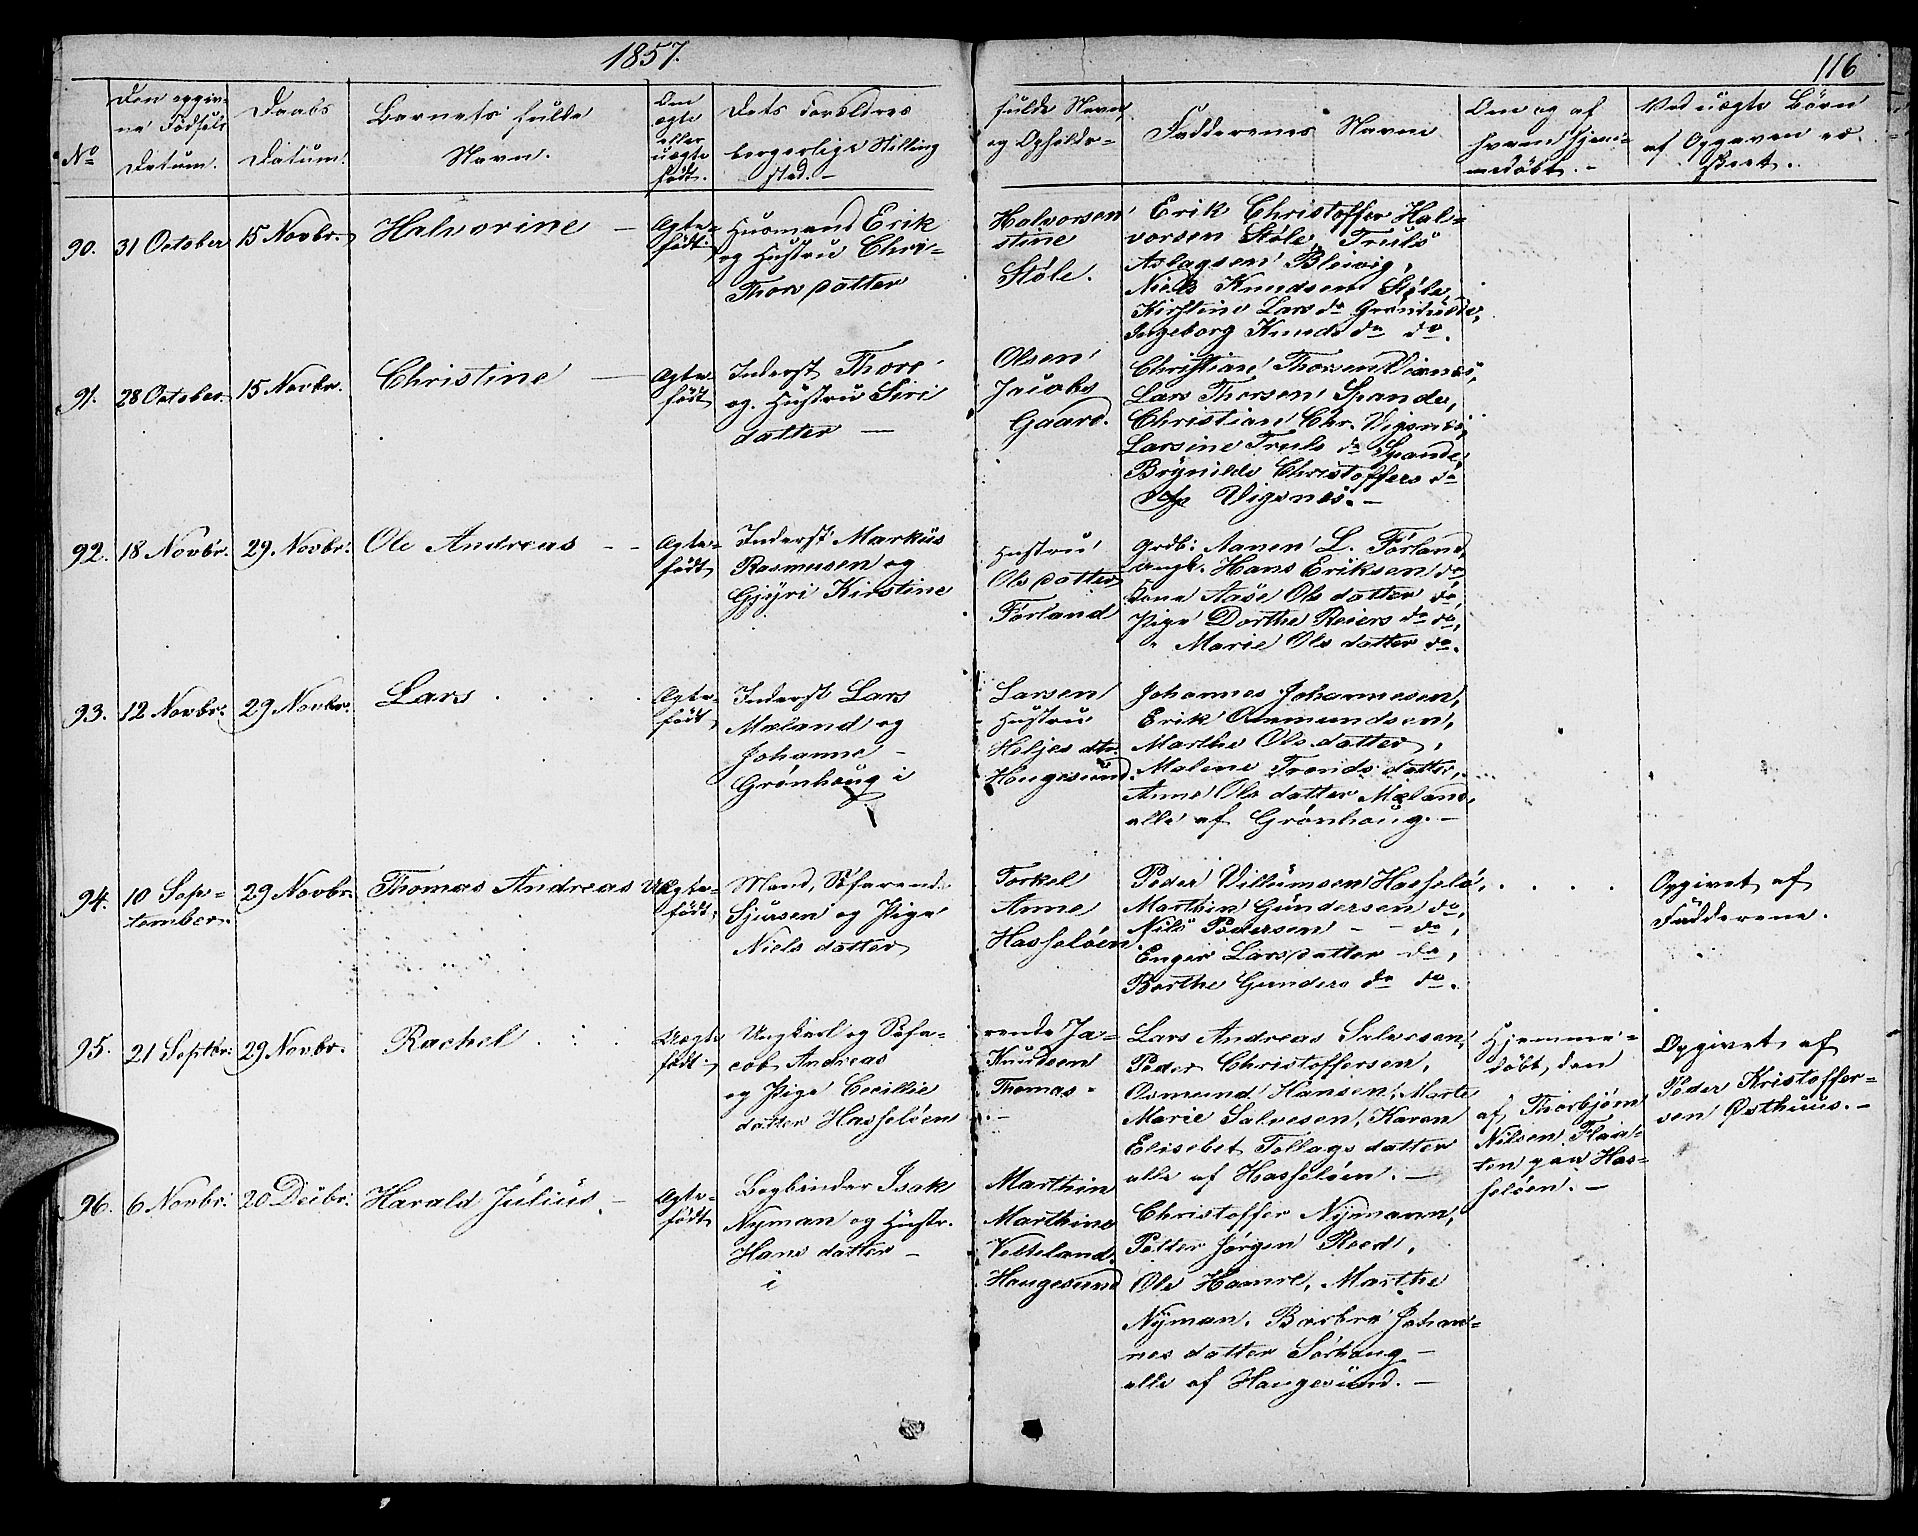 1857.
116
No
Den opgiv-
ne Födsels
Datum.
Daabs
Datum.
Barnets fulde
Navn.
Om
ægte
eller
uægte
födt.
Dets Forældres
borgerlige Stilling
sted. -
fulde Navn
og Opholds-
Faddernes Navne
Om og af
hvem hjem-
medöbt. -
Ved uægte Börn
af Opgaven er
skeet.
90. 31 October 15 Novbr. Halvorine - Ægte-
födt.
Husmand Erik
og Hustru Chri-
Thors datter
Halvorsen
stine
Støle.
Erik Christoffer Hal-
vorsen Støle, Truls
Aslagsen Bleivig,
Niels Knudsen Støle
Kirstine Lars do
Ingeborg Knuds do do.
91. 28 October. 15 Novbr. Christine - Ægte-
födt
Inderst Thore
og Hustru Siri
datter -
Olsen
Jacobs
Gaard.
Christian Thorsen
Lars Thorsen Spande,
Christian Chr. Vigsnes,
Larsine Truls do Spande,
Brynilde Christoffers do
Vigsnes. -
92. 18 Novbr. 29 Novbr. Ole Andreas - - Ægte-
födt
Inderst Markus
Rasmusen og
Gjyri Kirstine
Hustru
Ols datter
Førland
Grdb: Aanen L. Førland,
ungk. Hans Eriksen do
Kone Aase Ols datter do,
Pige Dorthe Reiers do do,
" Marie Ols datter do.
93. 12 Novbr. 29 Novbr. Lars . . . . Ægte-
födt
Inderst Lars
Mæland og
Johanne -
Grønhoug i
Larsen
Hustru
Heljes dtr.
Haugesund.
Johannes Johannesen,
Erik Omundsen,
Marthe Ols datter,
Malene Tronds datter,
Anne Ols datter Mæland,
alle af Grønhoug. -
94. 10 Sep-
tember. 29 Novbr. Thomas Andreas Uægte-
födt,
Mand, Söfarende
Sjursen og Pige
Niels datter
Torkel
Anne
Hasseløen
Peder Villumsen Hasselø,
Marthin Gundersen do,
Nils Pedersen - - do,
Enger Lars datter do,
Berthe Gunders do do.
Opgivet af
Fadderene.
95. 21 Septbr. 29 Novbr. Rachel . Uægte
födt
Ungkarl og Söfa-
cob Andreas
og Pige Cecillie
datter Hasseløen
rende Ja-
Knudsen
Thomas-
Lars Andreas Salvesen,
Peder Christoffersen,
Osmund Hansen, Marte
Marie Salvesen, Karen
Elisebet Tollags datter
alle af Hasseløen. -
Hjemme-
döbt, den
af Thorbjørn
Nilsen
paa Has-
seløen. -
Opgivet af
Peder Kristoffer-
sen Østhuus. -
96. 6 Novbr. 20 Decbr. Harald Julius. - Ægte-
födt
Bogbinder Isak
Nyman og Hustr.
Hans datter -
i
Marthin
Marthine
Vesteland.
Haugesund
Christoffer Nymann,
Petter Jørgen Roed,
Ole Hamre, Marthe
Nyman, Barbro Johan-
nes datter Sørhaug -
alle af Haugesund. -